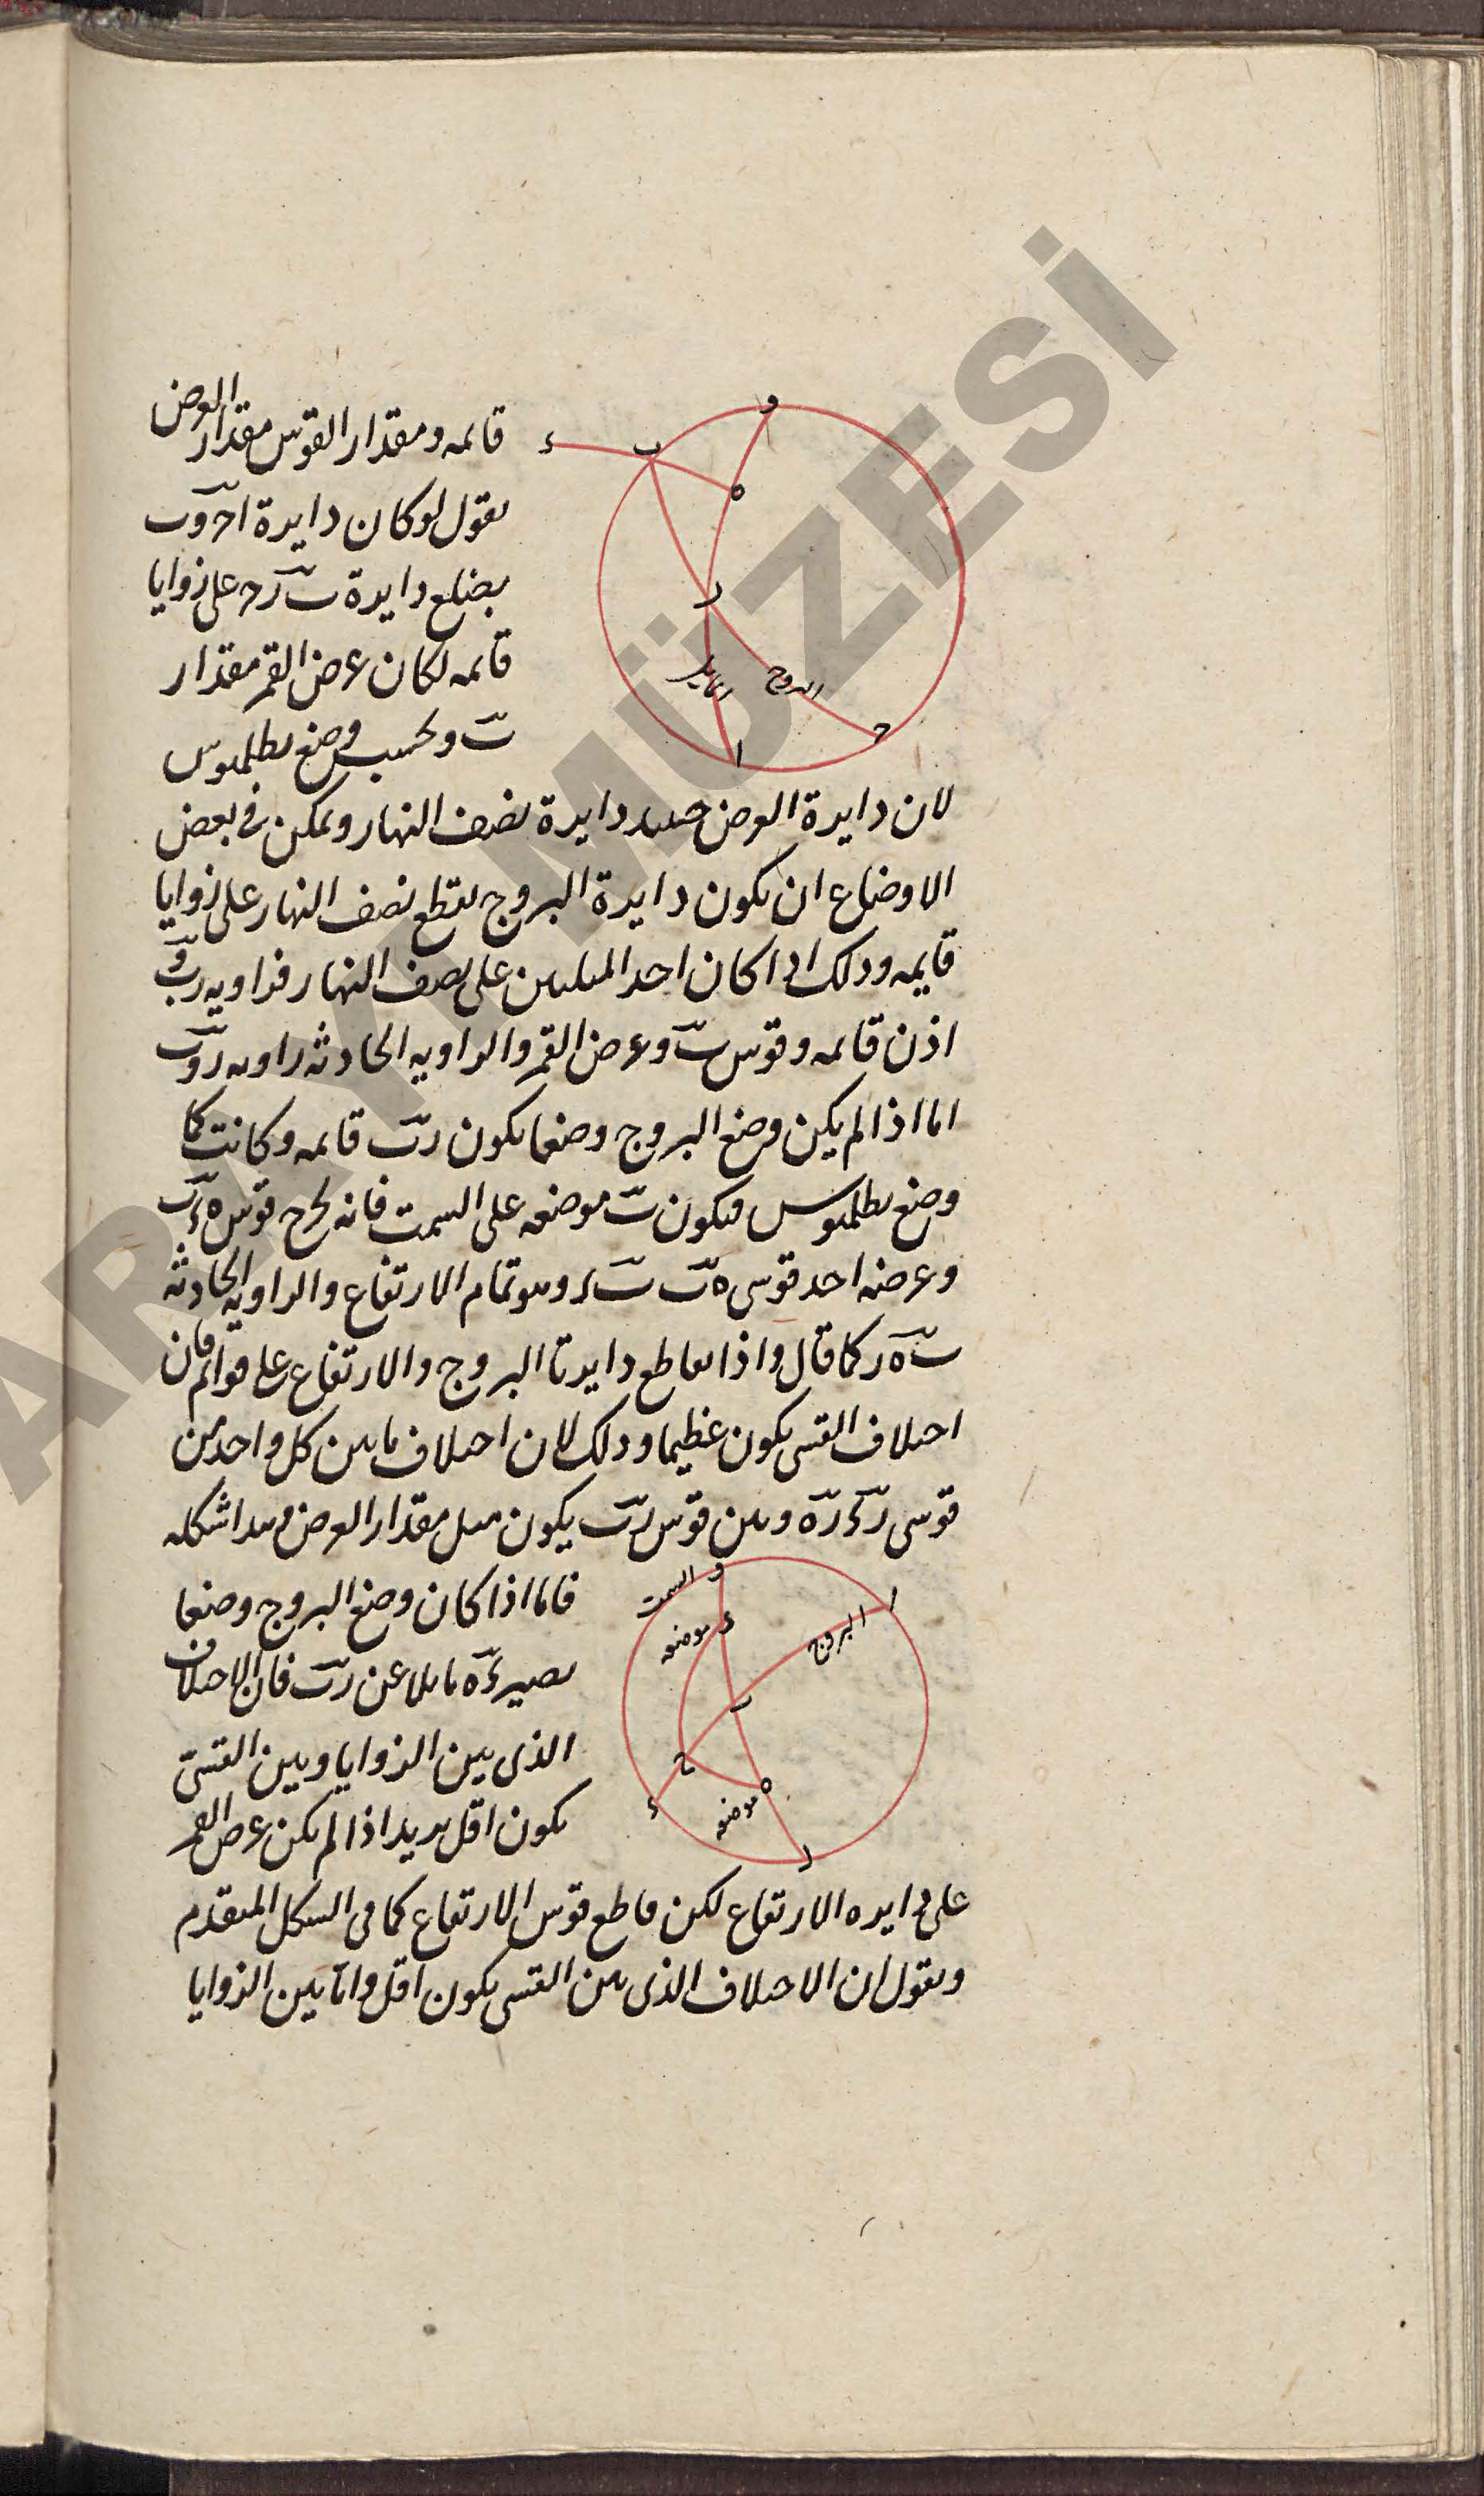 قائمه ومقدار القوس مقدار العرض
يقول لو كان دايرة احوب
يضلع دايرة ب ر ح على زوايا
قائمه لكان عرض القمر مقدار
ب و بحسب وضع بطلميوس
لان دايرة العرض دايرة نصف النهار ويمكن في بعض
الاوضاع ان يكون دايرة البروج يقطع نصف النهار على زوايا
قايمه وذلك اذا كان احد الميلين على نصف النهار فزاويه ر ب و
اذن قائمه وقوس ب و عرض القمر والزاويه الحادثه زاويه ر و ب
اما اذا لم يكن وضع البروج وضعا يكون ر ب قائمه وكانت كما
وضع بطلميوس فيكون ب موضعه على السمت فانه يخرج قوس ه ء ب
وعرضه احد قوسى ه ب ب ء وهو تمام الارتفاع والزاويه الحادثه
ب ه ر كما قال واذا تقاطع دايرتا البروج والارتفاع على قوائم فان
اختلاف القسى يكون عظيما وذلك لان اختلاف ما بين كل واحد من
قوسى ر ء ر ه وبين قوس ر ب يكون مثل مقدار العرض وهذا شكله
فاما اذا كان وضع البروج وضعا
يصير ء ه مايلا عن ر ب فان الاختلاف
الذى بين الزوايا وبين القسىّ
يكون اقل يريد اذا لم يكن عرض القمر
على دايره الارتفاع لكن قاطع قوس الارتفاع كما في الشكل المتقدم
ويقول ان الاختلاف الذى بين القسى يكون اقل واما بين الزوايا
و
ب
ء
ه
ر
المايل
البروج
ح
ا
و
السمت
ء موضعه
ا
البروج
ب
ح
ه
موضعه
ء
ر
ARAYI MÜZESİ